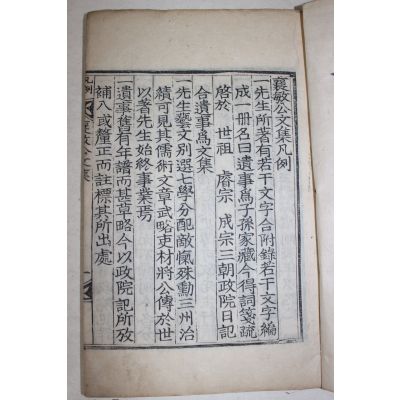 襄敏公文集凡例
一先生所著有若干文字合附錄若干文字編
成一冊名曰遺事爲子孫家藏今得詞箋疏
啓於 世祖 睿宗 成宗三朝政院日記
合遺事爲文集
一先生藝文別選七學分配敵愾殊勳三州治
績可見其儒術文章武略吏材將公傳於世
以著先生始終事業焉
一遺事舊有年譜而甚草略今以政院記所攷
補入或釐正而註標其所出處
凡例
襄敏公文集